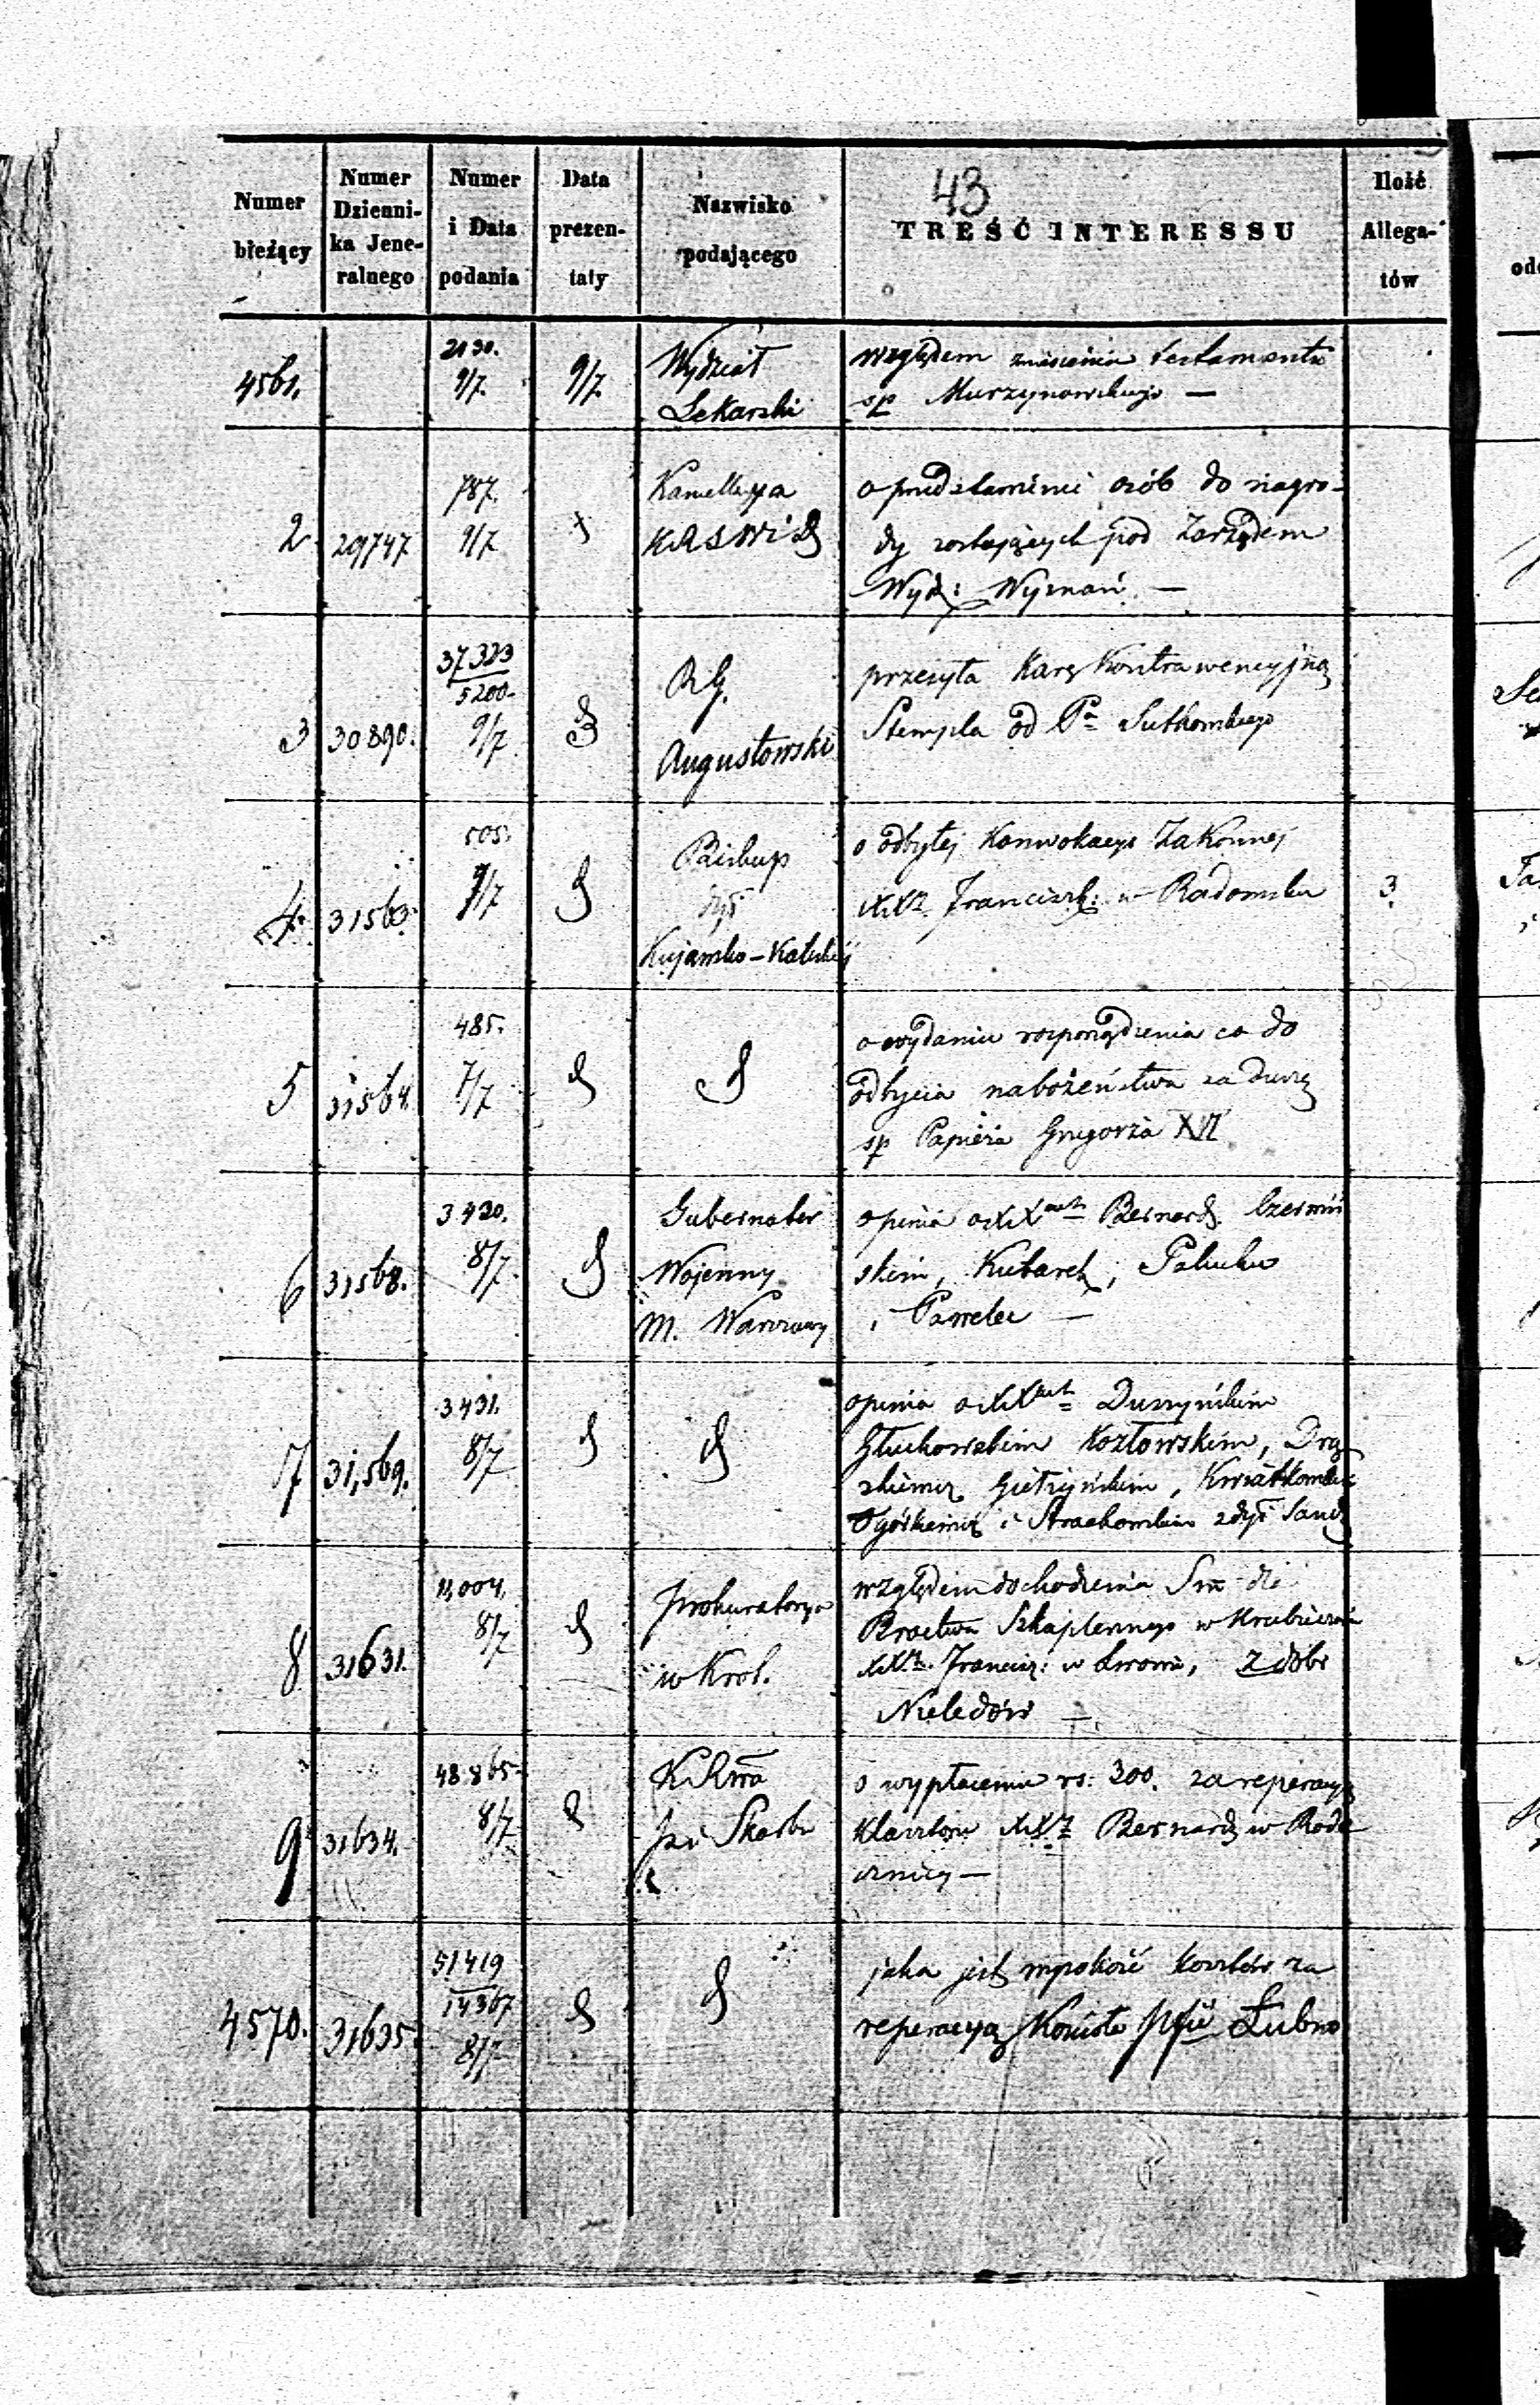 43
Numer bieżący
Numer Dzienni- ka Jene- ralnego
Numer i Data podania
Data prezen- taty
Nazwisko podającego
TREŚĆ INTERESSU
Ilość Allega- tów
4561.
2130.
9/7.
9/7.
Wydział
Lekarski
względem zniesienia testamentu
sp Murzynowskiego —
2
29747
787.
9/7
Kancellarya
KRSWiD
o przedstawienie osób do nagro-
dy zostających pod Zarządem
Wyd: Wyznań. —
3
30890.
37323
5200.
9/7
RG.
Augustowski
przesyła Karę Kontrawencyjną
Stempla od Pa Sutkowskiego
4.
31563.
505.
9/7
Biskup
dyś
Kujawsko-Kaliski
o odbytej Konwokacyi Zakonnej
XXZ. Franciszk: w Radomsku
3
5
31564.
485.
7/7
o wydanie rozporządzenia co do
odbycia nabożeństwa za duszę
sp Papieża Grzegorza XVI
6
31568.
3420.
8/7.
Gubernator
Wojenny
M. Warszawy
opinia o XX Bernard.
skim,
i Pawelec —
7
31,569.
3431.
8/7
opinia o XX Duszyńskim
Głuchowskim Kozłowskim, Drą
Gietzyńskim, Kwiatkowskim
i Strachowskim z dyś Sand
8
31631.
11,004.
8/7
Prokuratorya
w Krol.
względem dochodzenia
Bractwa Szkaplernego w Hrubieszowie
XXZ. Francisz: w Lwowie, z dobr
Nieledów —
9
31634.
48.865
8/7
KRwa
Pzi Skarbu
o wypłacenie rs: 300. za reperacyą
Klasztoru XXZ Bernard w Rade
cznicy —
4570.
31635
51419
14367
8/7
jaka jest wysokość kosztów za
reperacyą Kościoła Łubno